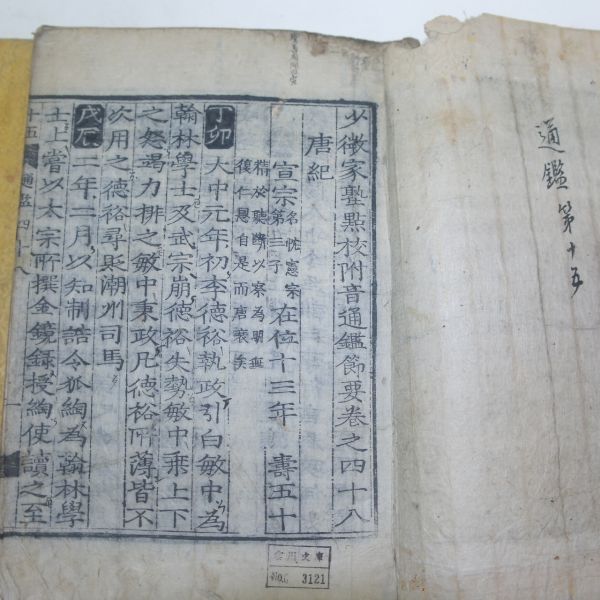 通鑑第十五
少微家塾點校附音通鑑節要卷之四十八
唐紀
宣宗 名忱憲宗第三子 在位十三年 壽五十
精於聽斷以察為明無復仁恩自是而唐衰矣
丁卯 大中元年初李德裕執政引白敏中為
翰林學士及武宗崩德裕失勢敏中乘上下
之怒竭力排之敏中秉政凡德裕所薄皆不
次用之德裕尋貶潮州司馬
戊辰 二年二月以知制誥令狐綯為翰林學
士上嘗以太宗所撰金鏡錄授綯使讀之至
十五 通鑑四十八
文庫
No. 3121